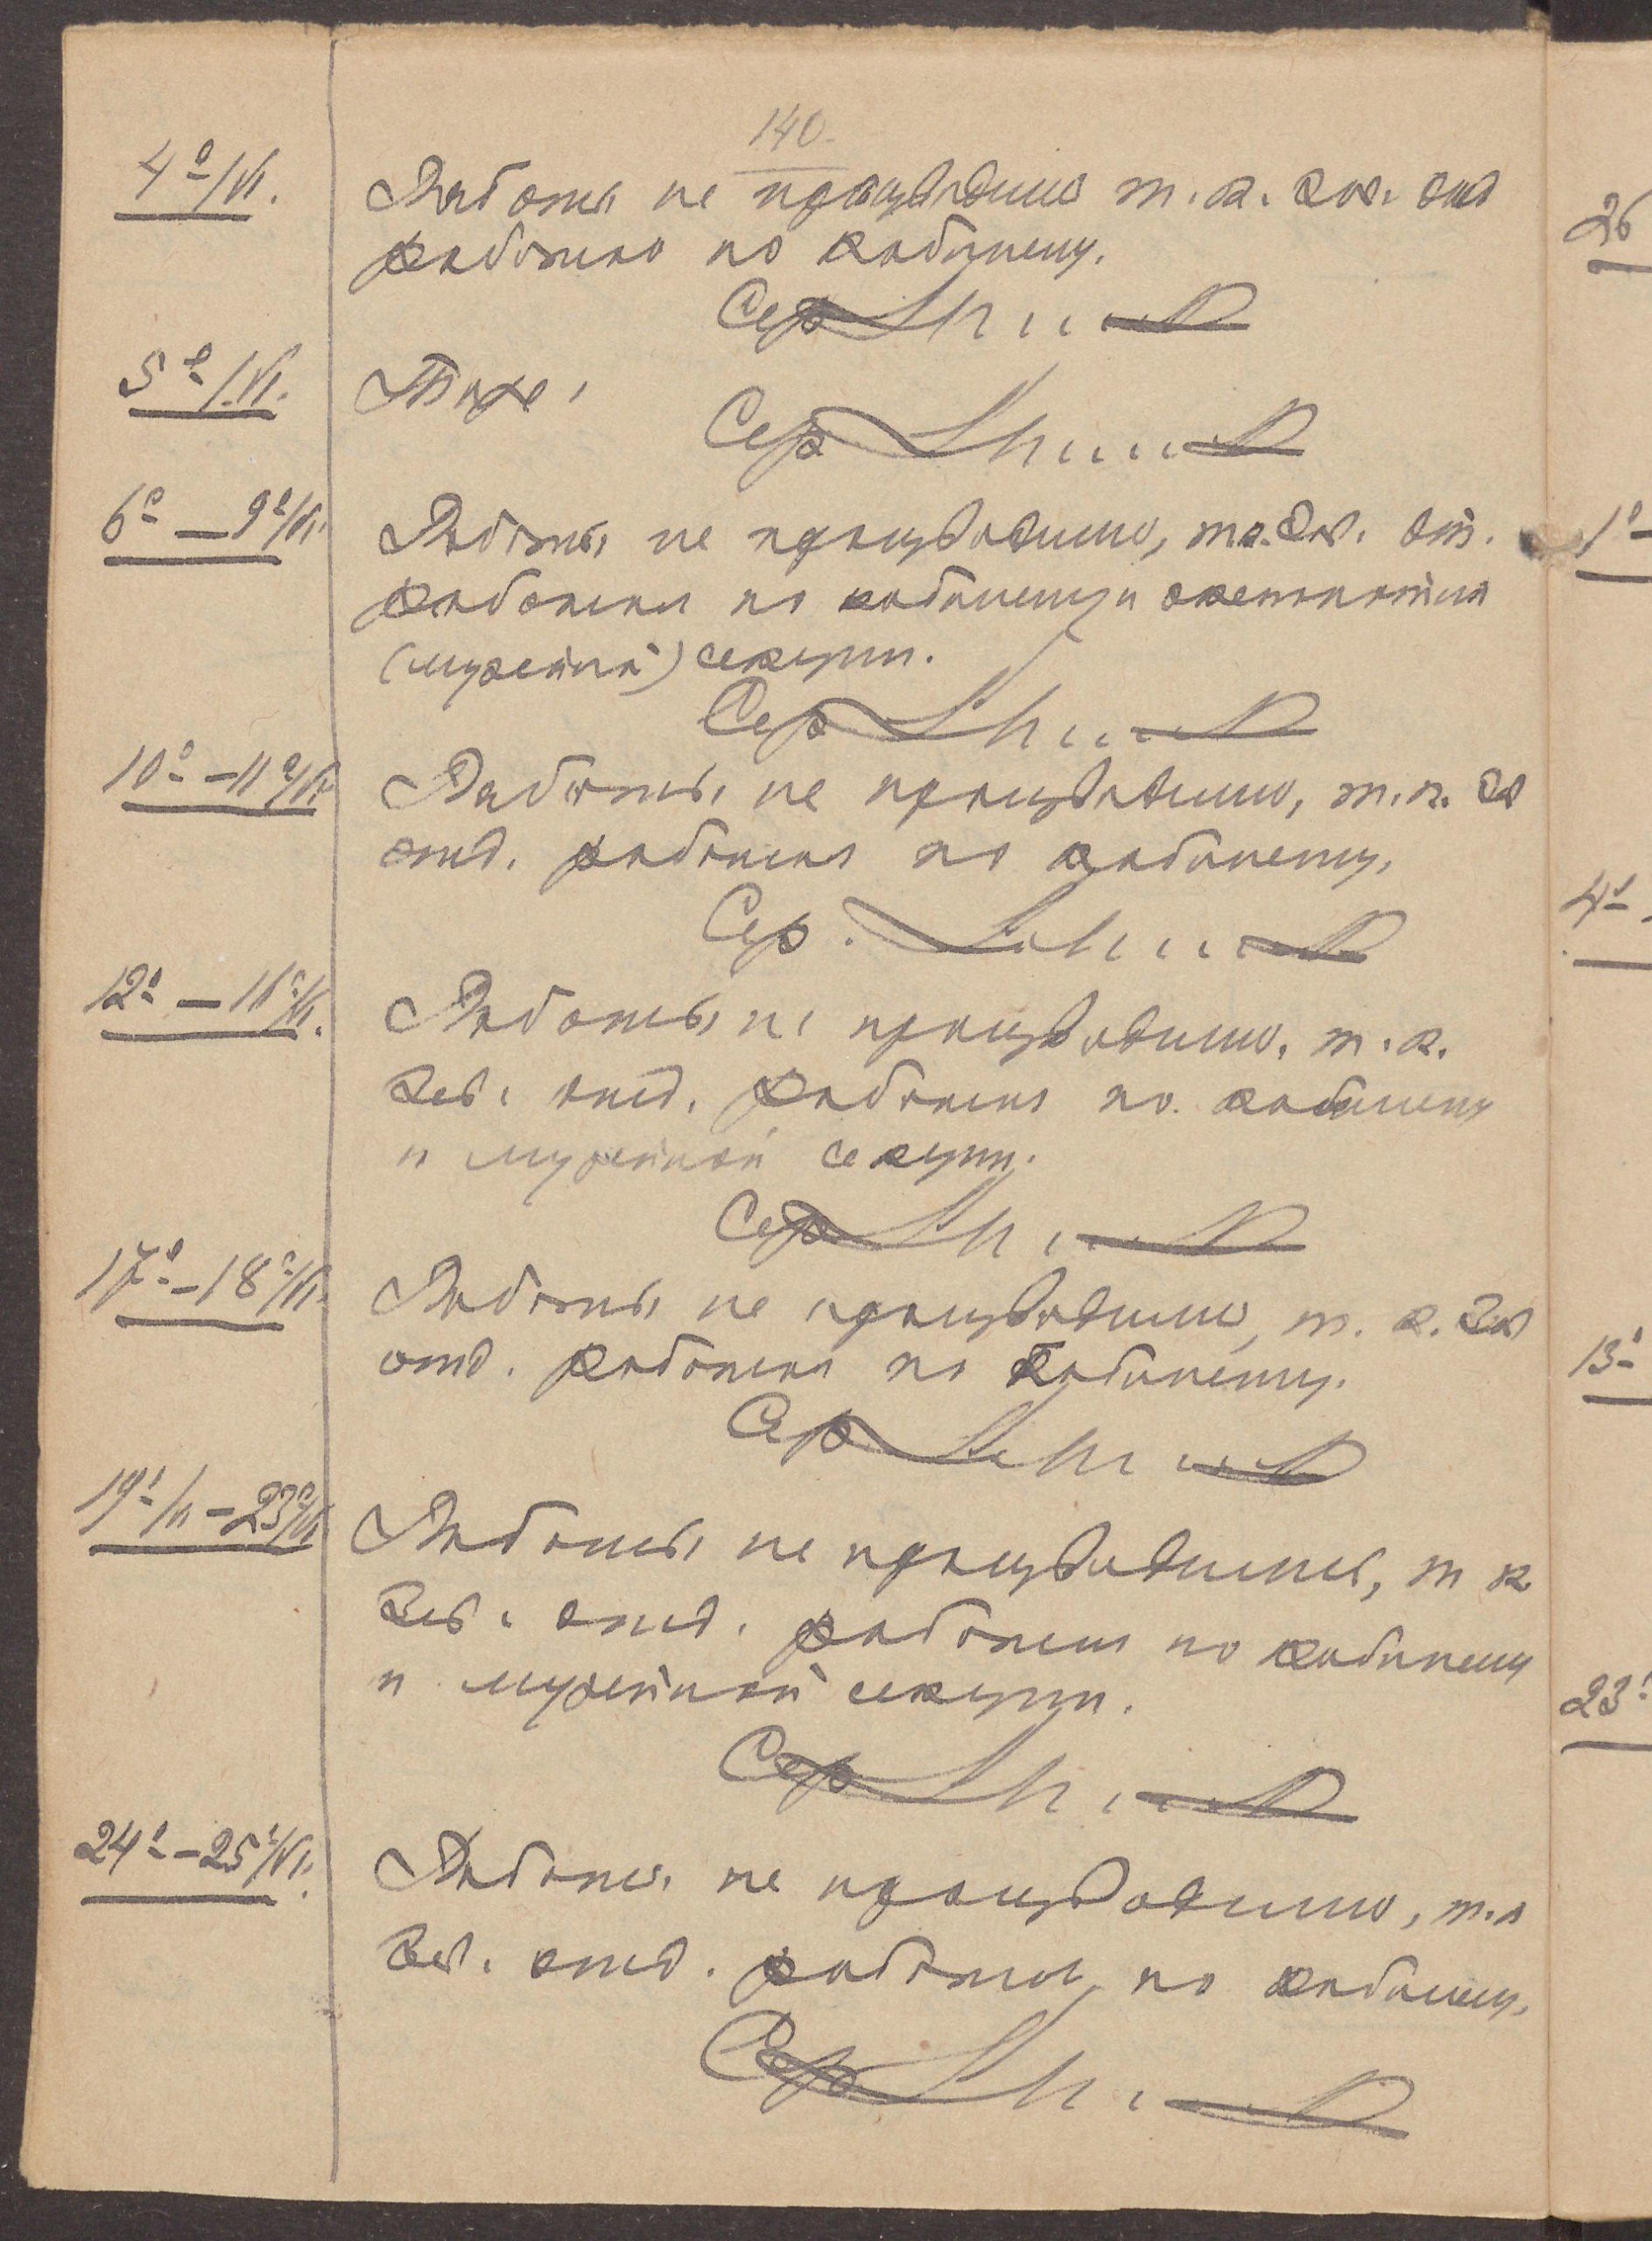 140.
4º/VI. Работы не производились т.к. зав. отд
работал по кабинету.
Сер
5º/VI. Тоже.
Сер
6º — 9º/VI. Работы не производились, т.к. Зав. от.
работал по кабинету и
(музейной) секции.
Сер
10º – 11º/VI. Работы не производились, т.к. За
отд. работал по кабинету.
Сер.
12º — 16º/VI. Работы не производились, т.к.
Зав. отд. работал по кабинету
и музейной секции.
Сер
17º – 18º/VI. Работы не производились, т.к. Зав
отд. работал по Кабинету.
Сер
19º/VI – 23º/VI Работы не производились, т к
Зав. отд. работал по кабинету
и музейной секции.
Сер
24º – 25º/VI. Работы не производились, т.к
Зав. отд. работал по кабинету.
Сер
26
1º
4º
13º
23º